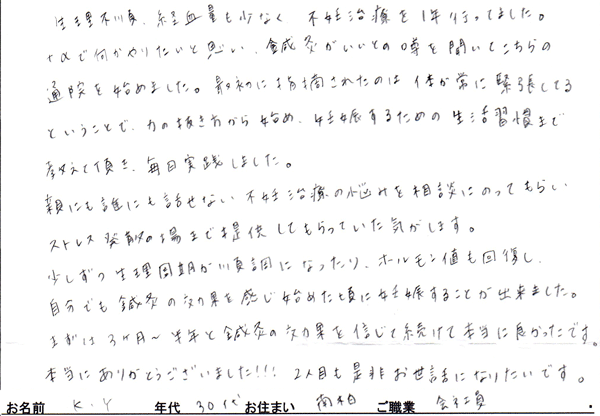 生理不順、経血量も少なく 不妊治療を1年行ってました。
+αで何かやりたいと思い、鍼灸がいいとの噂を聞いてこちらの
通院を始めました。最初に指摘されたのは 体が常に緊張してる
ということで、力の抜き方から始め、妊娠するための生活習慣まで
教えて頂き、毎日実践しました。
親にも誰にも話せない 不妊治療の悩みを相談にのってもらい
ストレス発散の場まで提供してもらっていた気がします。
少しずつ生理周期が順調になったり、ホルモン値も回復し、
自分でも鍼灸の効果を感じ始めた頃に妊娠することが出来ました。
まずは3ヶ月〜半年と鍼灸の効果を信じて続けて本当に良かったです。
本当にありがとうございました!!! 2人目も是非お世話になりたいです。
お名前 K.Y 年代 30代 お住まい 南柏 ご職業 会社員